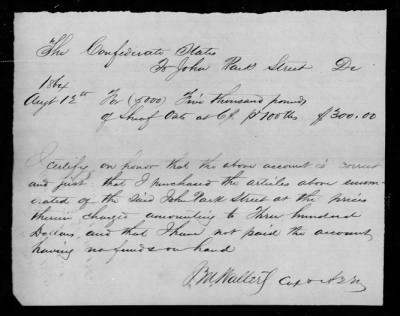 The Confederate States
To John Park Street Dr
1864
Augt 12th For (5000) Five thousand pounds
of Sheaf Oats at 6$ P 100 lbs $300.00
I certify on honor that the above account is correct
and just that I purchased the articles above enum-
erated of the said John Park Street at the prices
therein charged amounting to Three hundred
Dollars, and that I have not paid the account
having no funds on hand
Walters Capt &